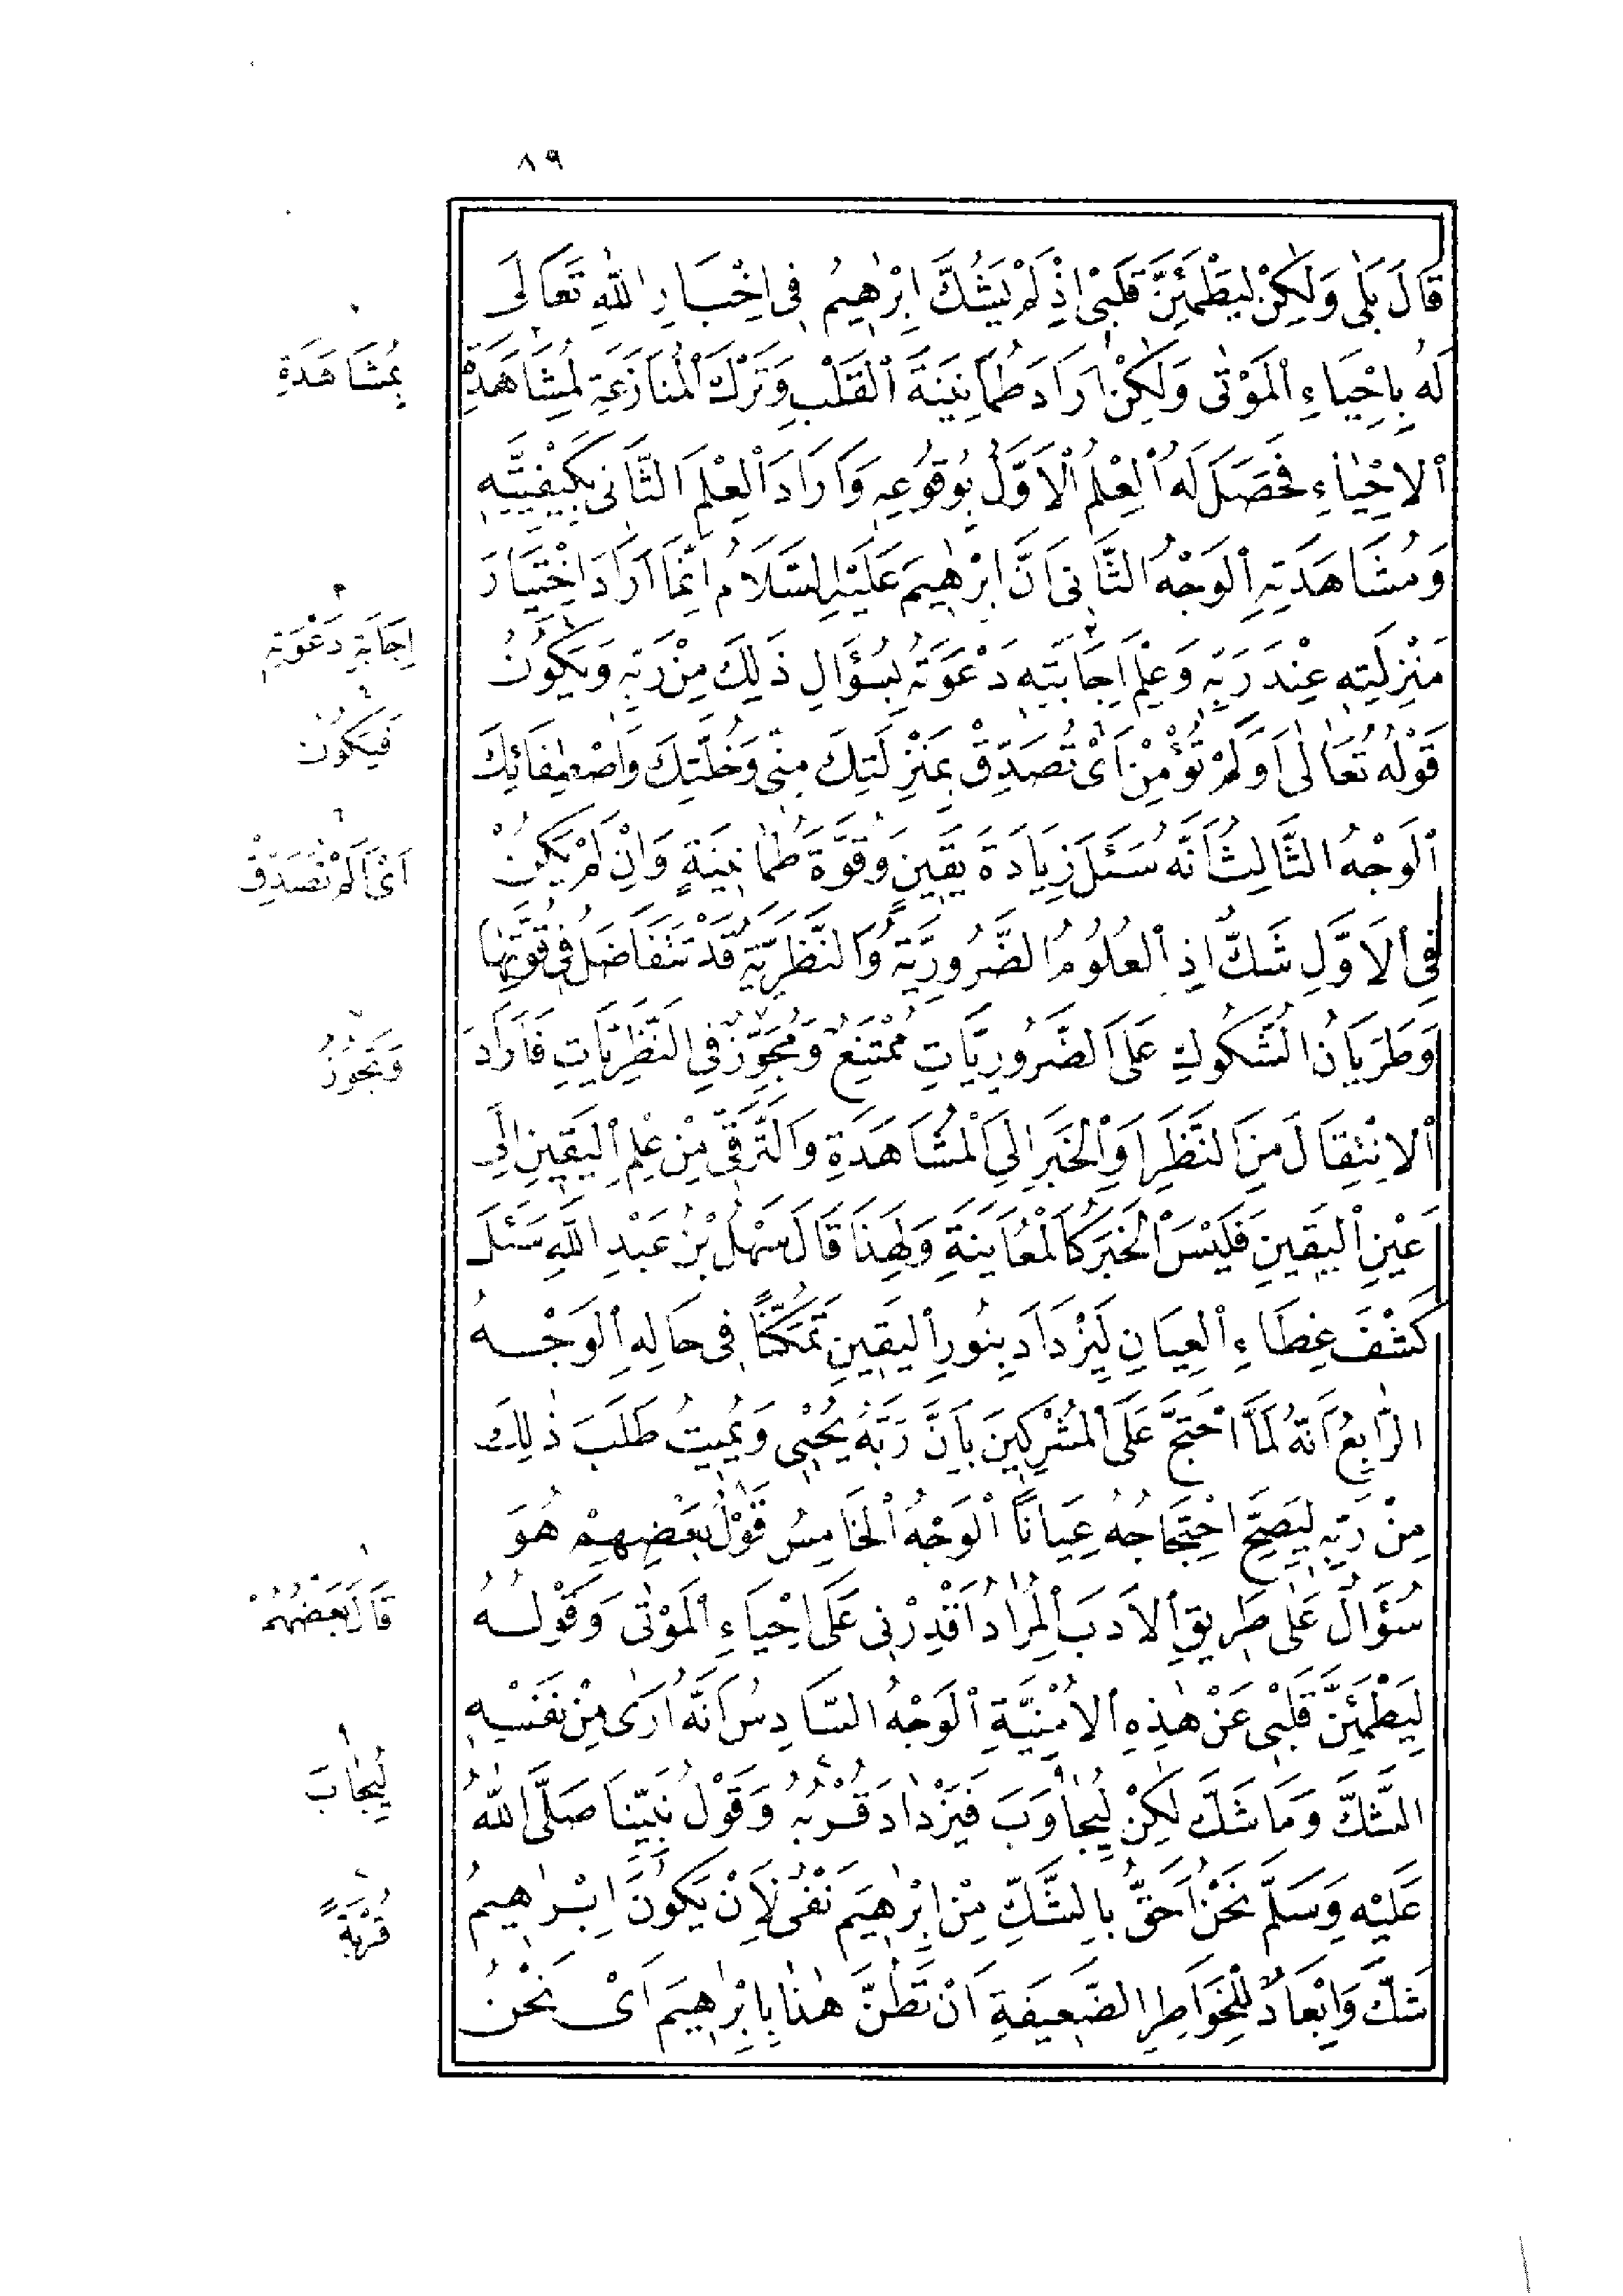 ٨٩
قَالَ بَلٰى وَلٰكِنْ لِيَطْمَئِنَّ قَلْبِى اِذْ لَمْ يَشُكَّ اِبْرٰهِيمُ فِى اِخْبَارِ اللّٰهِ تَعَالَى
لَهُ بِاِحْيَاءِ الْمَوْتٰى وَلٰكِنْ اَرَادَ طُمَأْنِينَةَ الْقَلْبِ وَتَرْكَ الْمُنَازَعَةِ لِمُشَاهَدَةِ
الْاِحْيَاءِ فَحَصَلَ لَهُ الْعِلْمُ الْاَوَّلُ بِوُقُوعِهِ وَاَرَادَ الْعِلْمَ الثَّانِى بِكَيْفِيَّتِهِ
وَمُشَاهَدَتِهِ اَلْوَجْهُ الثَّانِى اَنَّ اِبْرٰهِيمَ عَلَيْهِ السَّلَامُ اِنَّمَا اَرَادَ اخْتِيَارَ
مَنْزِلَتِهِ عِنْدَ رَبِّهِ وَعِلْمَ اِجَابَتِهِ دَعْوَتَهُ بِسُؤَالِ ذَلِكَ مِنْ رَبِّهِ وَيَكُونُ
قَوْلُهُ تَعَالٰى اَوَلَمْ تُؤْمِنْ اَىْ تُصَدِّقْ بِمَنْزِلَتِكَ مِنِّى وَخُلَّتِكَ وَاصْطِفَائِكَ
اَلْوَجْهُ الثَّالِثُ اَنَّهُ سَئَلَ زِيَادَةَ يَقِينٍ وَقُوَّةَ طُمَأْنِينَةٍ وَاِنْ لَمْ يَكُنْ
فِى الْاَوَّلِ شَكٌّ اِذِ الْعُلُومُ الضَّرُورِيَّةُ وَالنَّظَرِيَّةُ قَدْ تَتَفَاضَلُ فِى قُوَّتِهَا
وَطَرَيَانُ الشُّكُوكِ عَلَى الضَّرُورِيَّاتِ مُمْتَنِعٌ وَمُجَوَّزٌ فِى النَّظَرِيَّاتِ فَاَرَادَ
الْاِنْتِقَالَ مِنَ النَّظَرِ اَوِ الْخَبَرِ اِلَى الْمُشَاهَدَةِ وَالتَّرَقِّىَ مِنْ عِلْمِ الْيَقِينِ اِلَى
عَيْنِ الْيَقِينِ فَلَيْسَ الْخَبَرُ كَالْمُعَايَنَةِ وَلِهَذَا قَالَ سَهْلُ بْنُ عَبْدِ اللّٰهِ سَئَلَ
كَشْفَ غِطَاءِ الْعِيَانِ لِيَزْدَادَ بِنُورِ الْيَقِينِ تَمَكُّنًا فِى حَالِهِ اَلْوَجْهُ
الرَّابِعُ اَنَّهُ لَمَّا احْتَجَّ عَلَى الْمُشْرِكِينَ بِاَنَّ رَبَّهُ يُحْيِى وَيُمِيتُ طَلَبَ ذٰلِكَ
مِنْ رَبِّهِ لِيَصِحَّ احْتِجَاجُهُ عِيَانًا اَلْوَجْهُ الْخَامِسُ قَوْلُ بَعْضِهِمْ هُوَ
سُؤَالٌ عَلٰى طَرِيقِ الْاَدَبِ اَلْمُرَادُ اَقْدِرْنِى عَلَى اِحْيَاءِ الْمَوْتٰى وَقَوْلُهُ
لِيَطْمَئِنَّ قَلْبِى عَنْ هٰذِهِ الْاُمْنِيَّةِ اَلْوَجْهُ السَّادِسُ اَنَّهُ اَرٰى مِنْ نَفْسِهِ
الشَّكَّ وَمَا شَكَّ لٰكِنْ لِيُجَاوَبَ فَيَزْدَادَ قُرْبُهُ وَقَوْلُ نَبِيِّنَا صَلَّى اللّٰهُ
عَلَيْهِ وَسَلَّمَ نَحْنُ اَحَقُّ بِالشَّكِّ مِنْ اِبْرٰهِيمَ نَفْىٌ لِاَنْ يَكُونَ اِبْرٰهِيمُ
شَكَّ وَاِبْعَادٌ لِلْخَوَاطِرِ الضَّعِيفَةِ اَنْ تَظُنَّ هٰذَا بِاِبْرٰهِيمَ اَىْ نَحْنُ
بِمُشَاهَدَةِ
اِجَابَةِ دَعْوَتِهِ
فَيَكُونُ
اَىْ اَلَمْ تُصَدِّقْ
وَتَجَوُّزُ
قَالَ بَعْضُهُمْ
لِيُجَابَ
قُرْبَةً